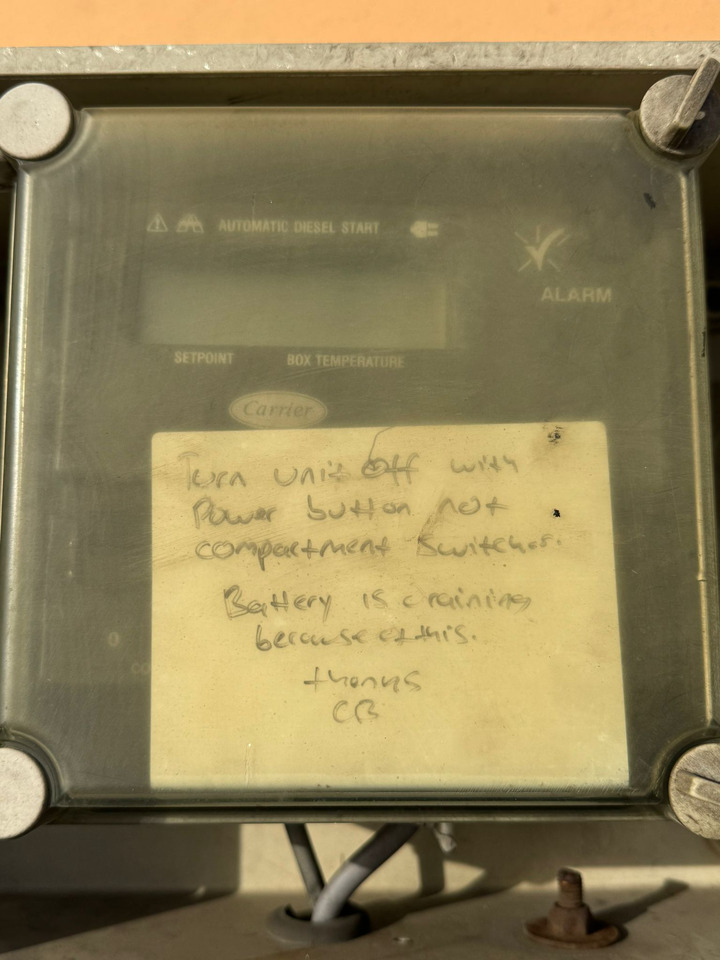 AUTOMATIC DIESEL START
ALARM
SETPOINT BOX TEMPERATURE
Carrier
Turn unit Off with
Power button not
compartment Switches.
Battery is draining
because of this.
thanks
CB
0
CO